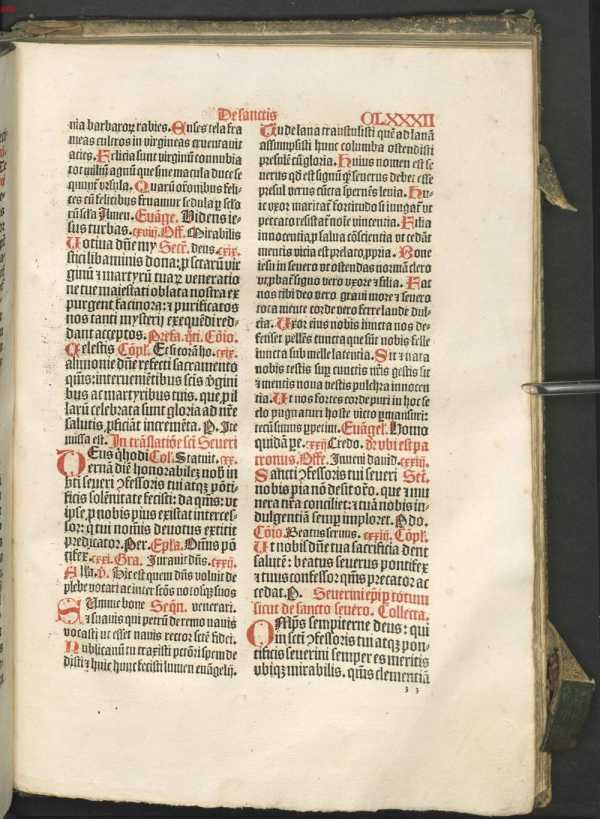 De sanctis
CLXXXII
nia barbarorꝫ rabies. Enses tela fra
meas cultros in virgineas cruentauit
acies. Felicia sunt virginū connubia
tot viliū agnū que sine macula duce se
quunt̄ vrsula. Quarū orōnibus feli-
ces cū felicibus fruamur sedula ꝑ seclo
rū scl̄a Amen. Evāge. Videns ie-
sus turbas. cxviij. Off. Mirabilis
Uotiua dn̄e my Secr̄. deus. cxix.
stici libaminis dona: ꝑ sctarū vir
ginū ⁊ martyrū tuaꝝ veneratio
ne tue maiestati oblata nostra ex
purgent facinora: ⁊ purificatos
nos tanti mysterij exequēdi red-
dant acceptos. Prefa. Cōio.
Celestis Cōpl̄. Et si corā ho. cxix.
alimonie dn̄e refecti sacramento
qūs: interueniētibus scis ꝟgini
bus ac martyribus tuis. que ꝓ il
larū celebrata sunt gloria ad nr̄e
salutis ꝓficiāt incremēta. P. Ite
missa est. In trāslatiōe sci Seueri
DEus q̄ hodi Col. Statuit. cx.
ernā diē honorabilez nob̄ in
bti seueri ꝯfessoris tui atqꝫ pōti-
ficis solēnitate fecisti: da qūs: vt
ipse ꝓ nobis pius existat interces-
sor: q̄ tui noīnis deuotus extitit
predicator. Per. Epl̄a. Oīnis pō
tifex. cxxi. Gra. Jurauit dn̄s. cxxij.
Alla. v̄. Hic est quem dn̄s voluit de
plebe vocari ac inter scōs noto suos
SUmme bone Seqn̄. venerari.
⁊ suauis qui petrū de remo nauis
vocasti vt esset nauis rector sctē fidei.
Publicanū tu traxisti pctōri spem de
disti ⁊ huic hunc fecisti lumen euāgelij.
Qui de lana transtulisti quē ad lanā
assumpsisti hunc columba ostendisti
presulē cū gloria. Huius nomen est se
uerus qd̄ est signū q̄ seuerus debet esse
presul verus cūcta spernēs leuia. Hu-
ic vxor maritat̄ fortitudo sū iungat̄ vt
peccato resistat noīe vincentia. Filia
innocentia, ꝓ salua cōscientia vt cedāt
mentis vicia est prelato, ꝓpria. Bone
iesu in seuero vt ostendas normā clero
vt ꝓbat̄ signo vero vxore ⁊ filia. Fac
nos tibi deo vero graui more ⁊ seuero
tota mente corde vero ferre laude dul-
cia. Uxor eius nobis iuncta nos de-
fenset pellēs cuncta que sūt nobis felle
iuncta sub melle latentia. Sit ⁊ nata
nobis testis sup̄ cunctis nr̄is gestis sit
⁊ mentis noua vestis pulchra innocen
tia. Ut nos fortes corde puri in hoc se
clo pugnaturi hoste victo ꝑmansuri:
tecū simus ꝑpetim. Euāgel̄. Homo
quidā pe. cxxij Credo. dr̄ vbi est pa
tronus. Offe. Inueni dauid. cxxiij.
Sancti ꝯfessoris tui seueri Secr̄.
nobis pia nō desit orō. que ⁊ mu
nera nr̄a conciliet: ⁊ tuā nobis in-
dulgentiā semp imploret. P. do.
Cōio. Beatus seruus. cxxiij. Cōpl̄.
Ut nobis dn̄e tua sacrificia dent
salutē: beatus seuerus pontifex
⁊ tuus confessor qūs precator ac
cedat. P. Seuerini epi ꝑ totum
sicut de sancto seuero. Collecta.
OMp̄s sempiterne deus: qui
in scti ꝯfessoris tui atqꝫ pon-
tificis seuerini semper es meritis
vbiqꝫ mirabilis. qūs clementiā